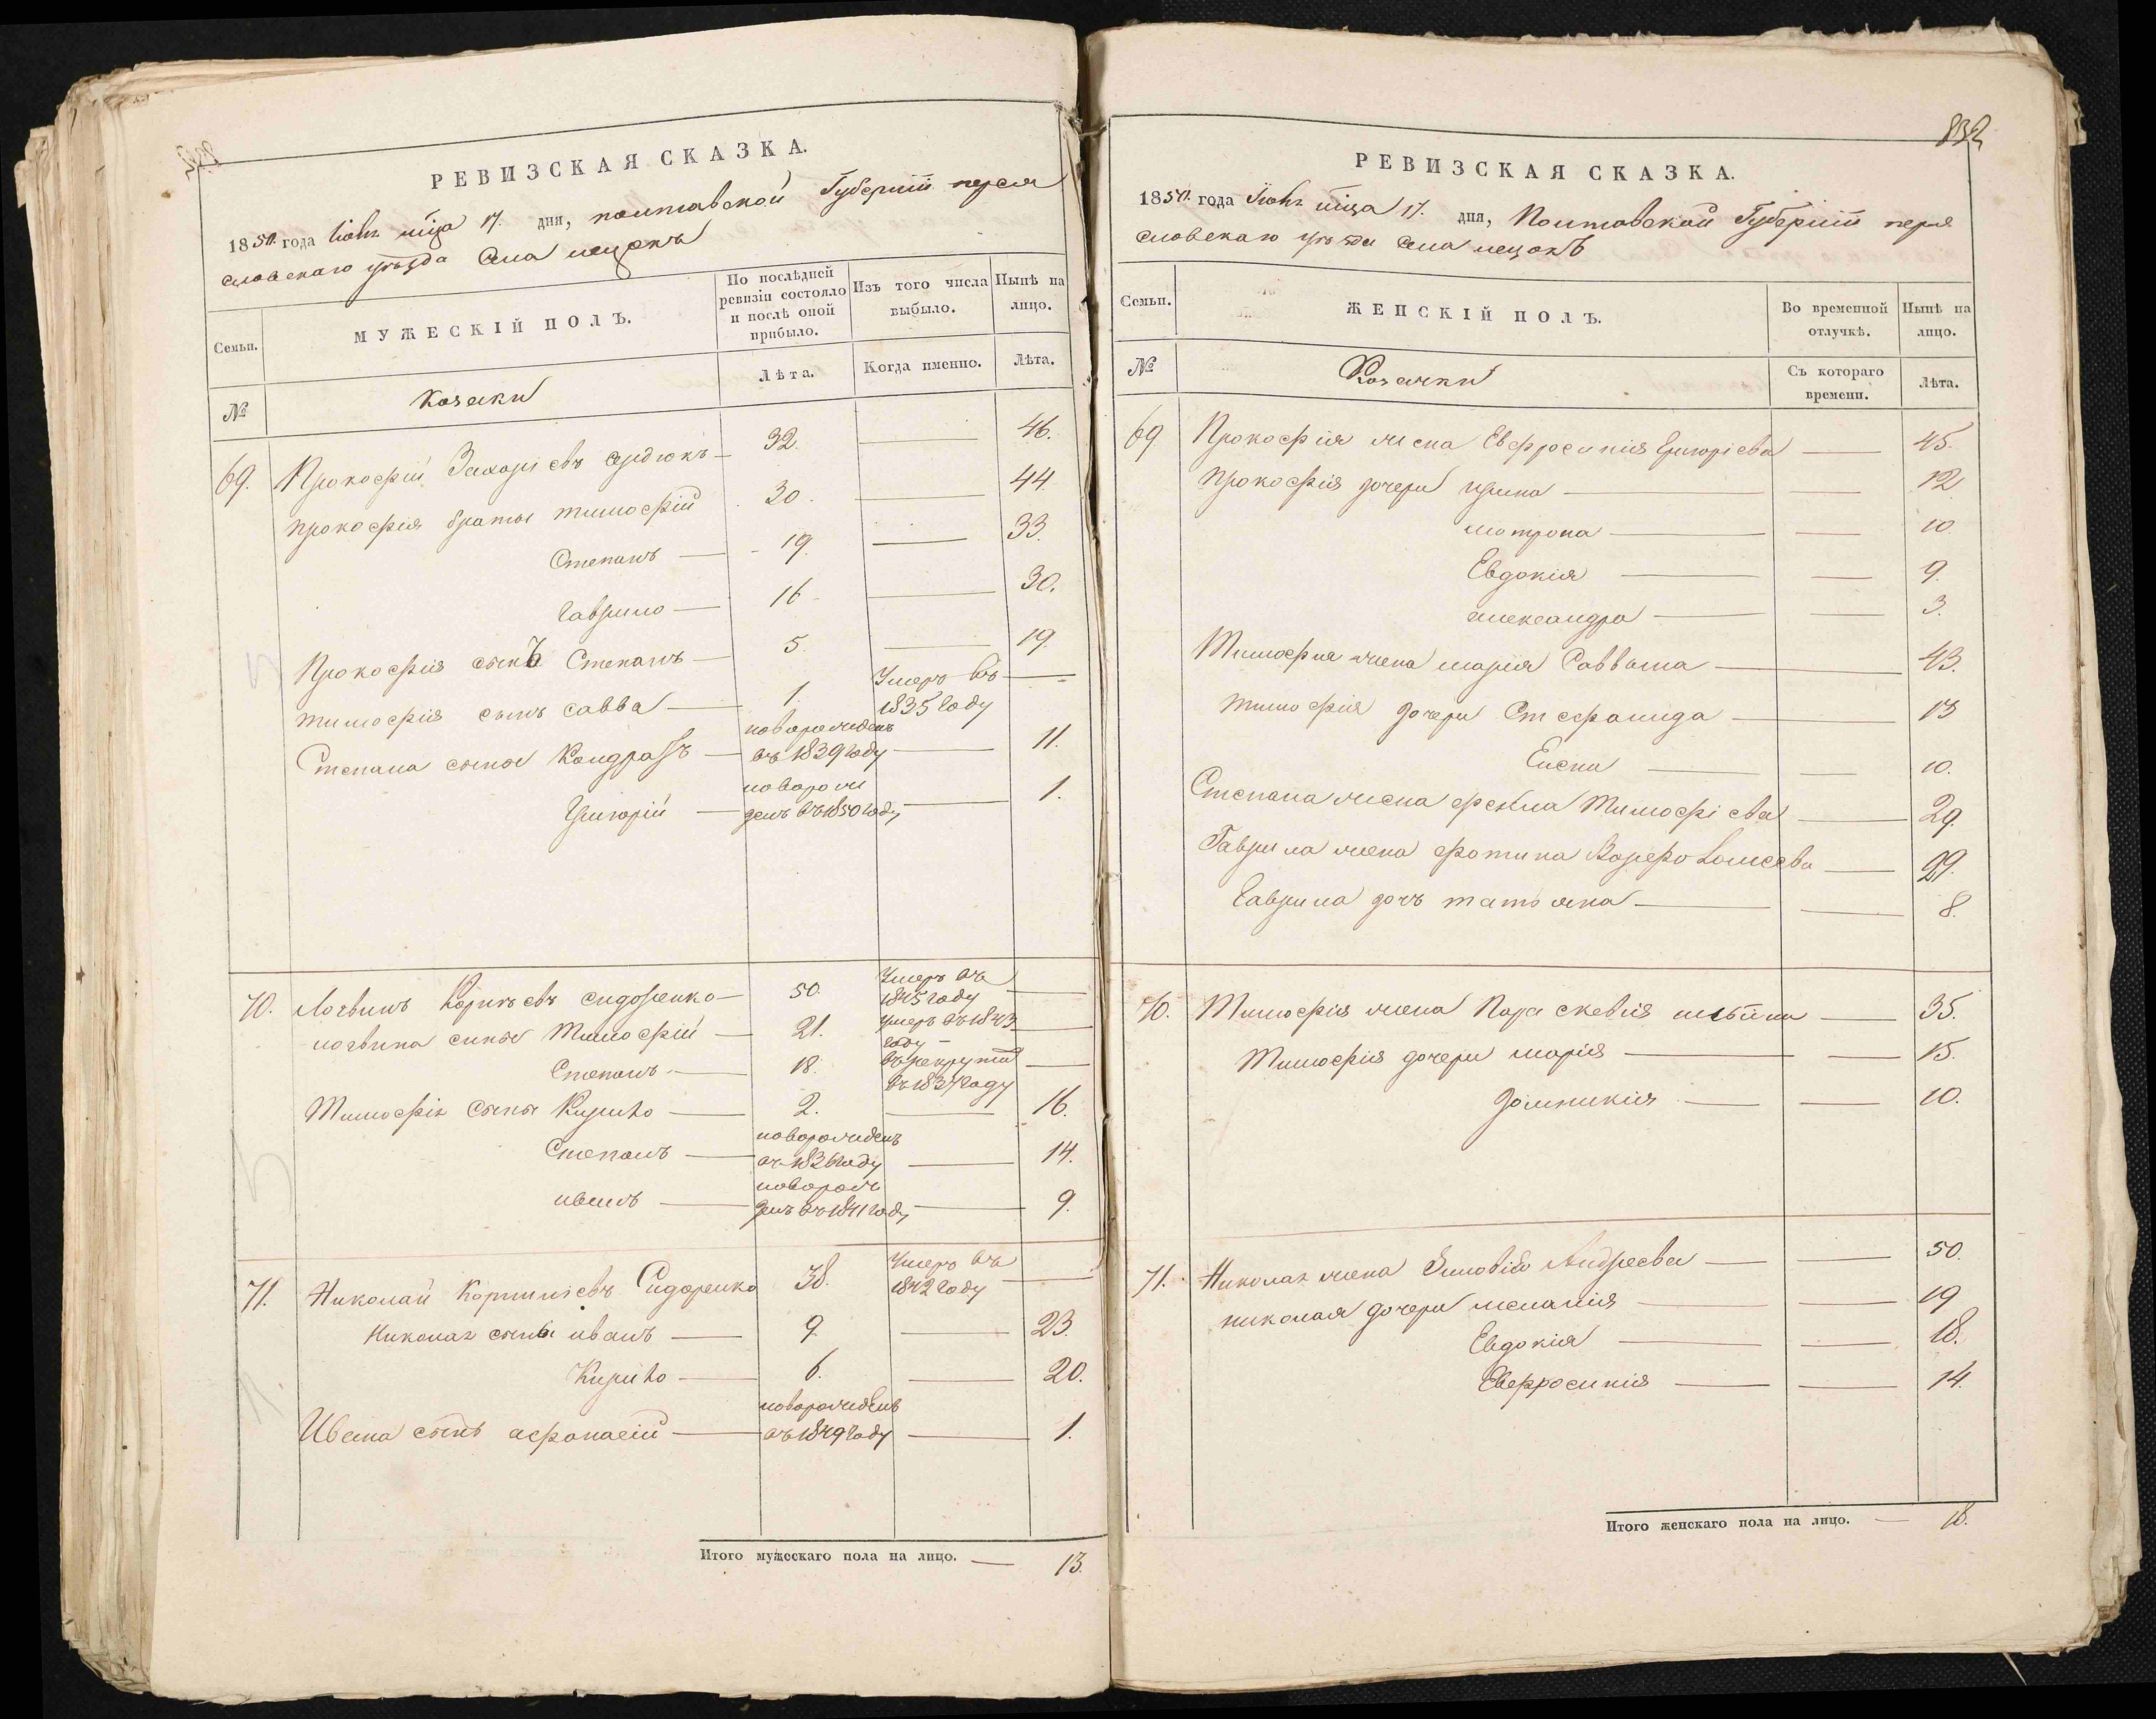 РЕВИЗСКАЯ СКАЗКА.
1850. года Іюня мца 17. дня, полтавской Губерніи перея
славскаго уѣзда Села
Семьи.
МУЖЕСКІЙ ПОЛЪ.
По послѣдней ревизіи состояло и послѣ оной прибыло.
Изъ того числа выбыло.
Нынѣ на лицо.
№
Козаки
Лѣта.
Когда именно.
Лѣта.
69. Прокофій Захаріевъ сердюкъ — 32. — 46.
прокофія братья тимофій 30. — 44.
Степанъ — 19. — 33.
Гаврило — 16 — 30.
Прокофія сынъ Степанъ — 5. — 19.
тимофія сынъ савва — 1. Умеръ въ —
1835 году
Степана сыны Кондратъ — новорожденъ
въ 1839 году — 11.
Григорій — новорож
денъ въ 1850 году — 1.
70. Логвинъ сидоренко — 50. Умеръ въ
1845 году —
логвина сыны Тимофій — 21. умеръ въ 1843
году —
Степанъ — 18. въ рекруты
въ 1837 году —
Тимофія сыны Кирило — 2. — 16.
Степанъ — новорожденъ
въ 1836 году — 14.
иванъ — новорож
денъ въ 1841 году — 9.
71. Николай Корниліевъ Сидоренко 38. Умеръ въ
1842 году —
Николая сыны иванъ — 9. — 23.
Кирило — 6. — 20.
Ивана сынъ афанасій — новорожденъ
въ 1849 году — 1.
Итого мужескаго пола на лицо. — 13.
832
РЕВИЗСКАЯ СКАЗКА.
1850. года Іюня мца 17. дня, Полтавской Губерніи перея
славскаго уѣзда села
Семьи.
ЖЕНСКІЙ ПОЛЪ.
Во временной отлучкѣ.
Нынѣ на лицо.
№
Козачки
Съ котораго времени.
Лѣта.
69 Прокофія жена Евфросинія Григоріева — 45.
Прокофія дочери ирина — — 12
мотрона — — 10.
Евдокія — — 9.
александра — — 3.
Тимофія жена марія Саввина — 43.
тимофія дочери Стефанида — 13
Елена — — 10.
Степана жена фекла Тимофіева — 29.
Гаврила жена фотина Варфоломеева — 29.
Гаврила дочь татіяна — — 8.
70. Тимофія жена Параскевія — 35.
Тимофія дочери марія — — 15.
домникія — — 10.
71. Николая жена Зиновія Андреева — — 50.
николая дочери меланія — — 19
Евдокія — — 18.
Евфросинія — — 14.
Итого женскаго пола на лицо. — 18.